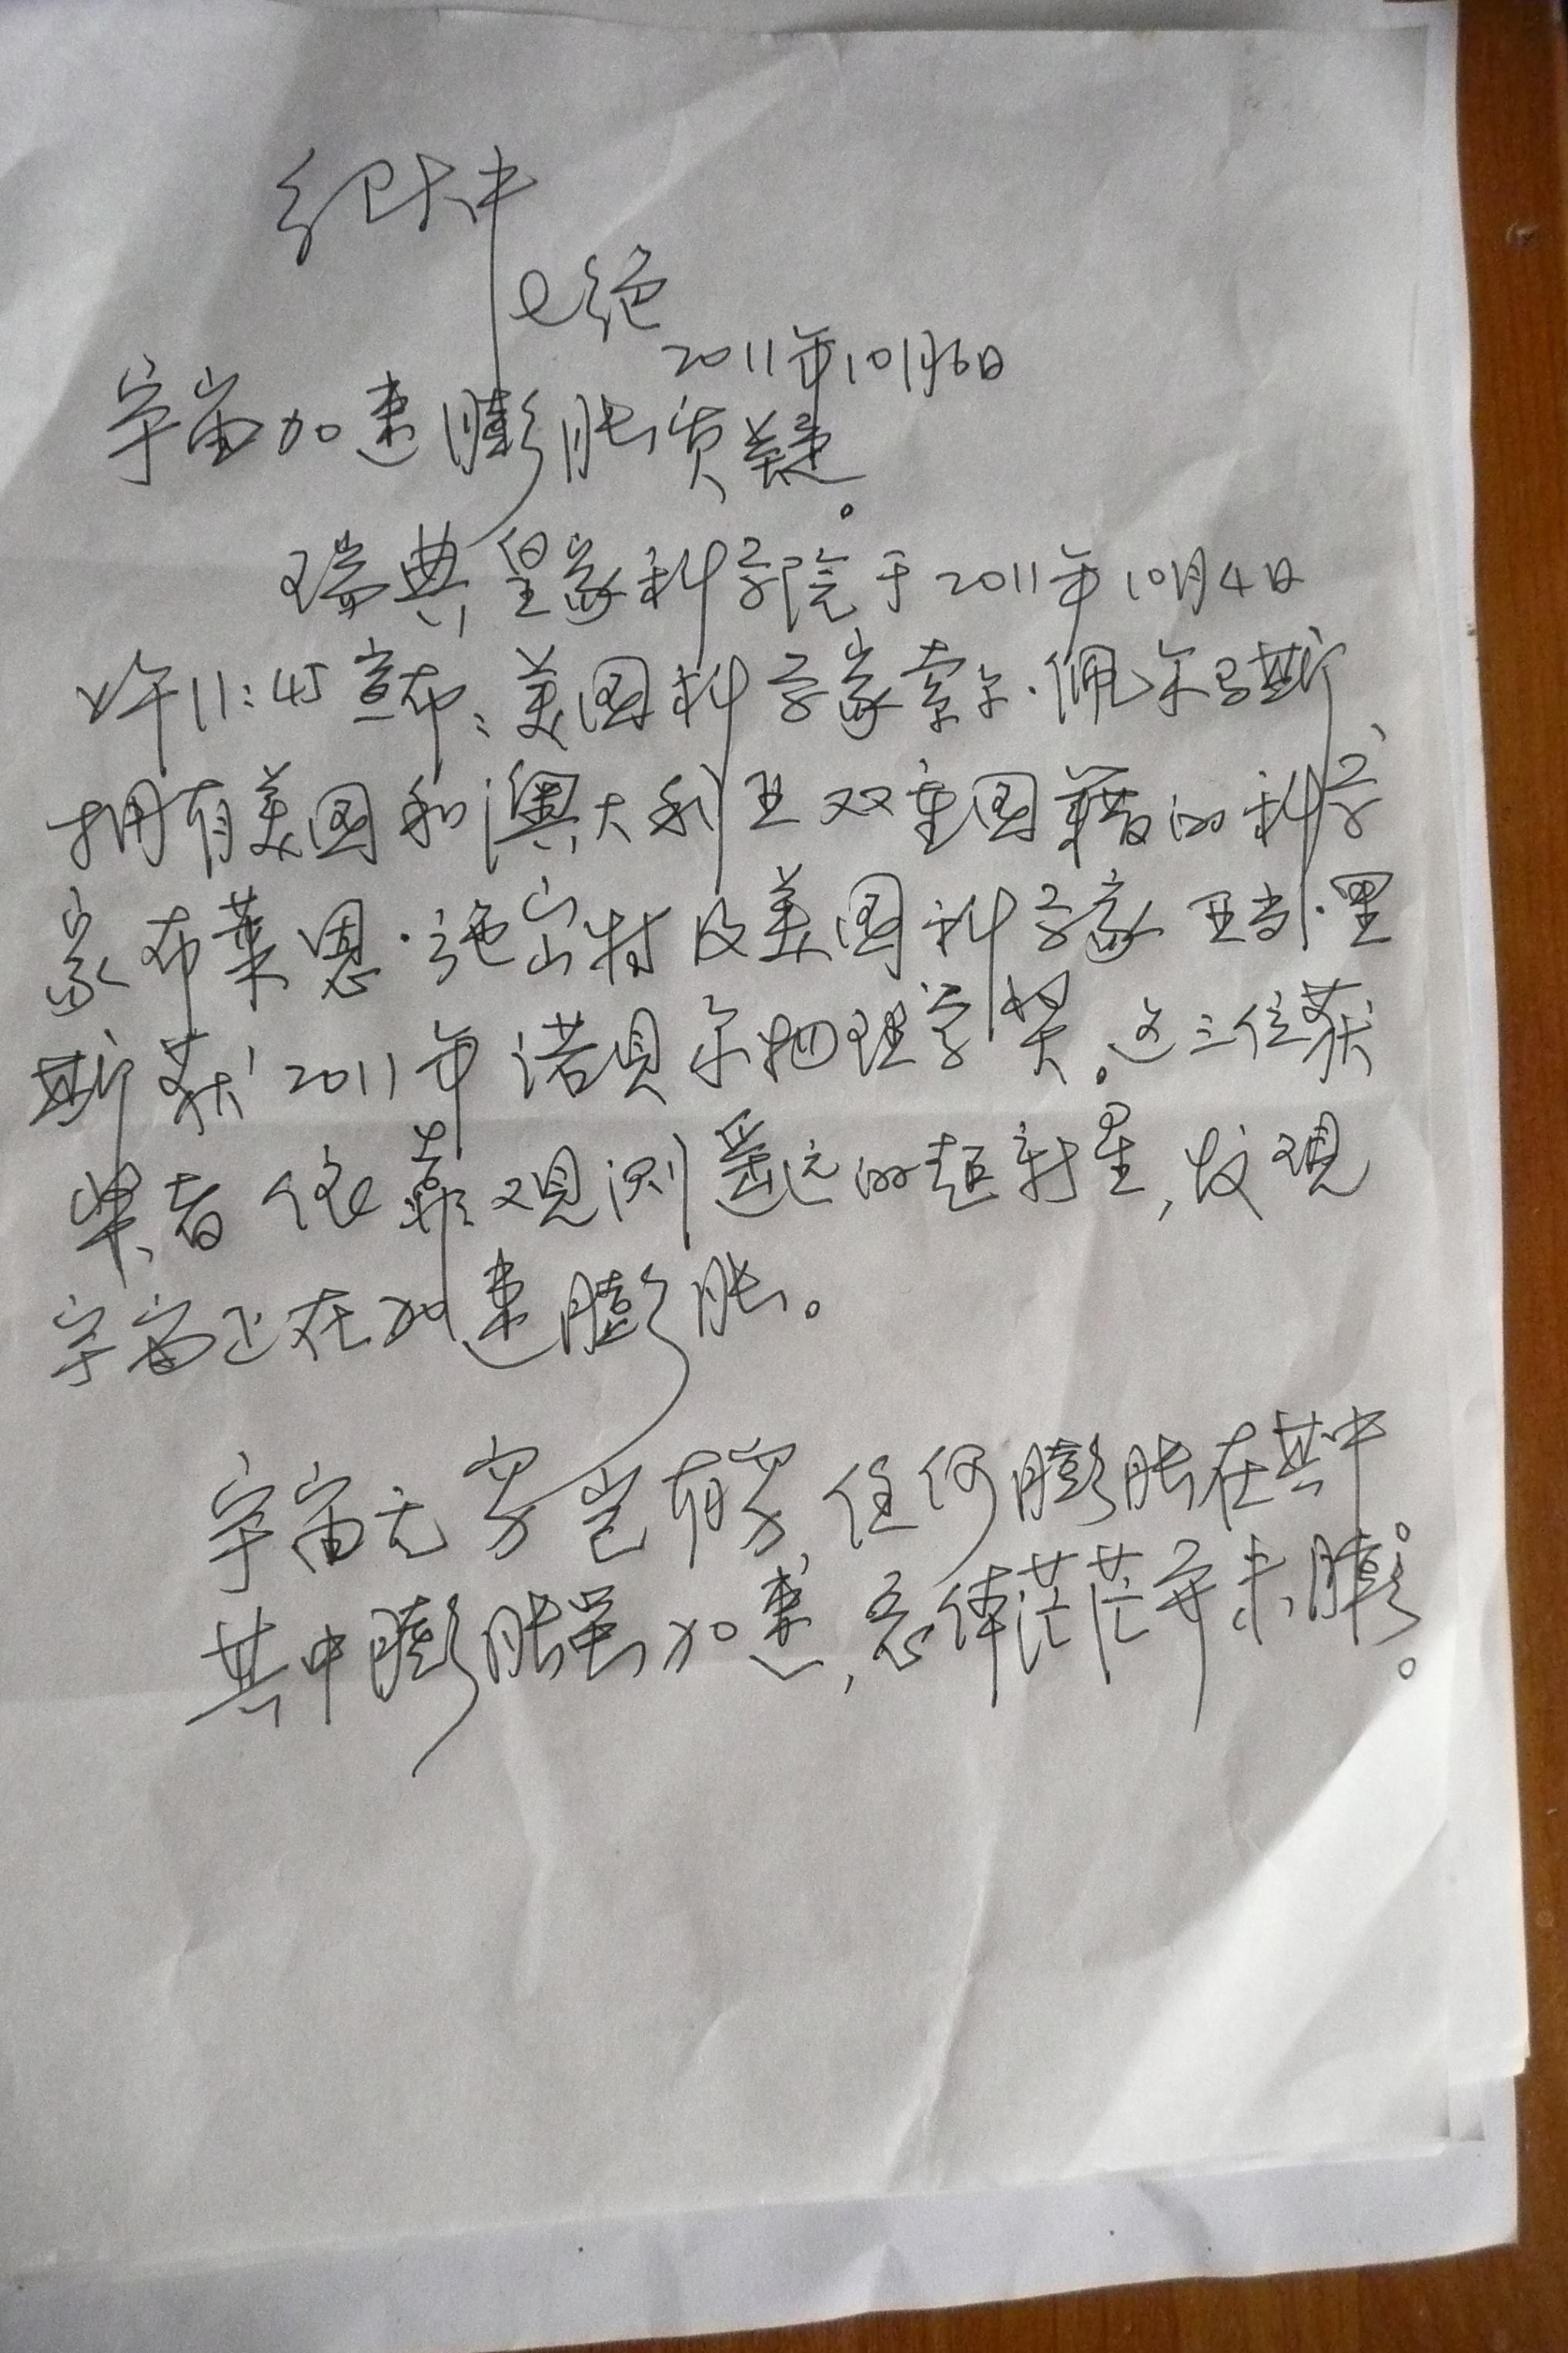 纪大中
七绝
2011年10月6日
宇宙加速膨胀质疑。
瑞典皇家科学院于2011年10月4日
午11:45宣布：美国科学家索尔·佩尔马斯、
拥有美国和澳大利亚双重国籍的科学
家布莱恩·施密特及美国科学家亚当·里
斯获2011年诺贝尔物理学奖。这三位获
奖者依靠观测遥远的超新星，发现
宇宙正在加速膨胀。
宇宙无穷岂有穷，任何膨胀在其中。
其中膨胀虽加速，总体茫茫并未膨。